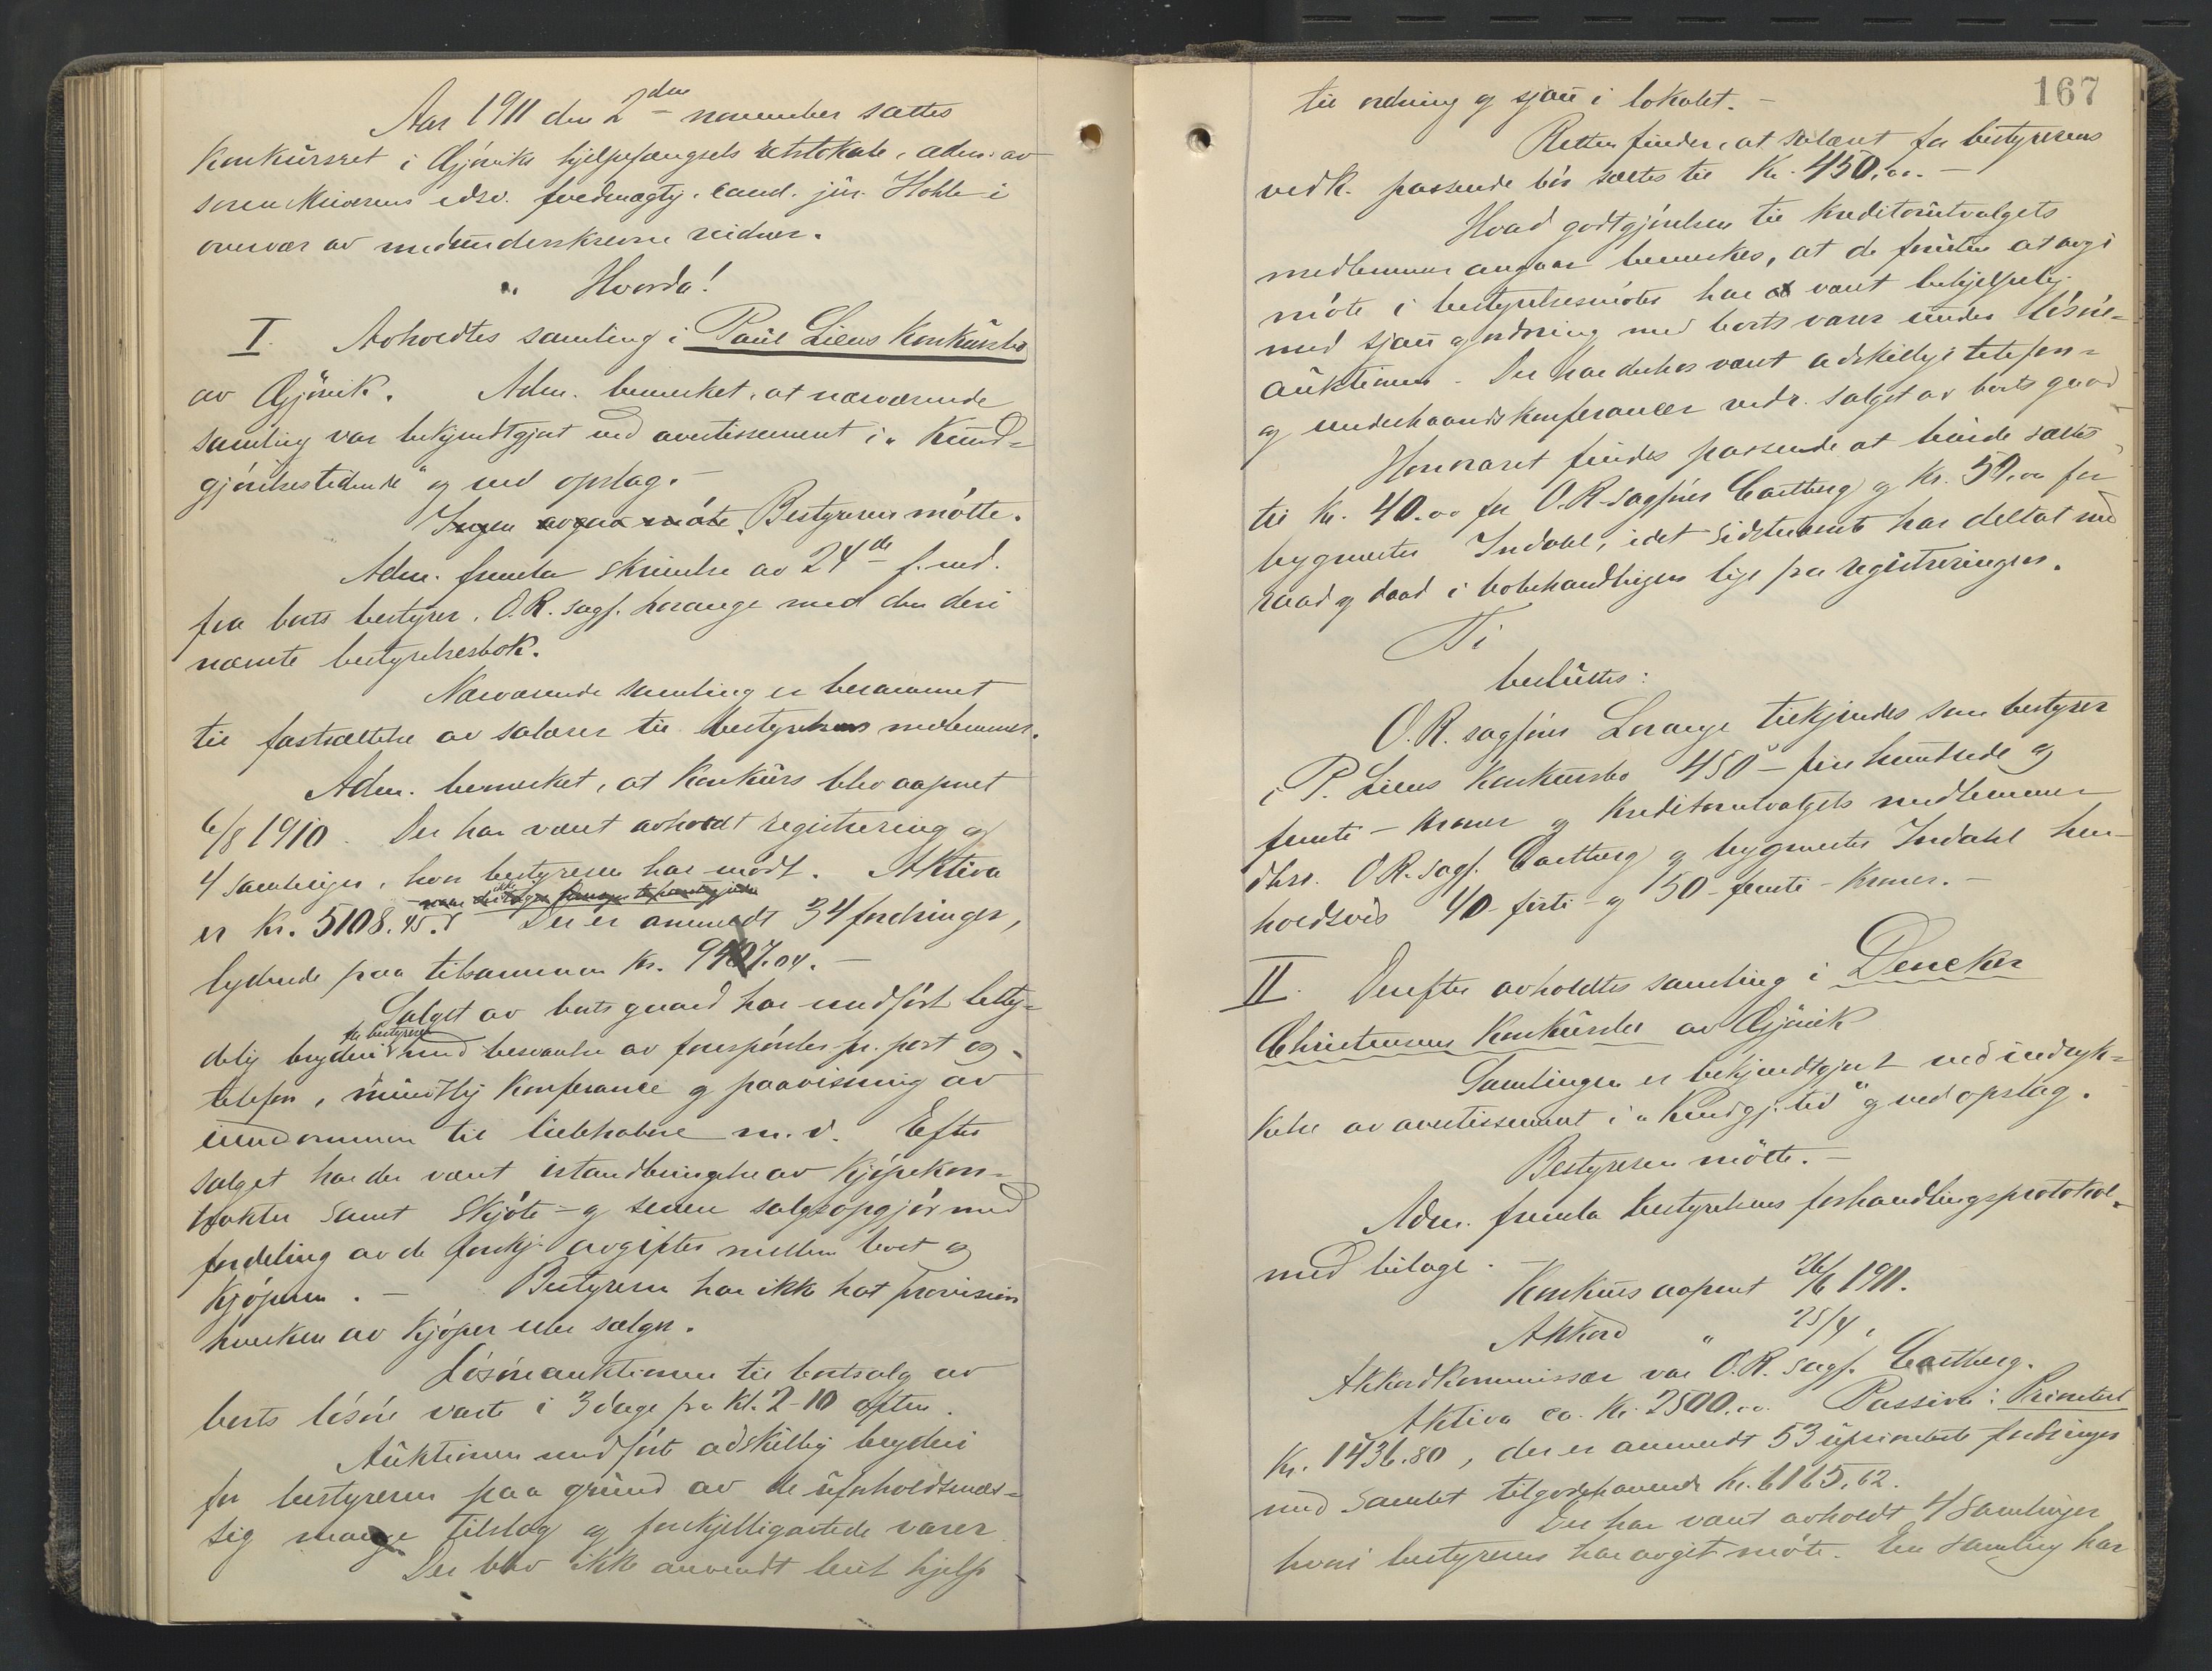 Aar 1911 den 2den november sattes
konkursret i Gjøvik hjelpefængsels retslokale, adm. av
sorenskriverens edsv. fuldmægtig, cand. jur. Hohle i
overvær av medunderskrevne vidner.
Hvorda!
I. Avholdtes samling i Paul Liens Konkursbo
av Gjøvik. Adm. bemerket, at nærværende
samling var bekjendtgjort ved avertissement i „Kund-
gjørelsestidende" og ved opslag.
Ingen avgav møte. Bestyreren møtte.
Adm. fremla skrivelse av 24de f. md.
fra boets bestyrer, O.R. sagf. Lorange med den deri
nævnte bestyrelsesbok.
Nærværende samling er berammet
til fastsættelse av salærer til bestyrelsens medlemmer.
Adm. bemerket, at konkurs blev aapnet
6/8 1910. Der har været avholdt registrering og
4 samlinger, hvor bestyreren har mødt. Aktiva
er Kr. 5108.45. Der er anmeldt 34 fordringer,
lydende paa tilsammen Kr. 9407.04. –
Salget av boets gaard har medført bety-
for bestyreren
delig bryderi med besvarelse av forespørsler pr. post og
telefon, mundtlig konferance og paavisning av
eiendommen til liebhabere m. v. Efter
salget har der været istandbringelse av kjøpekon-
trakter samt skjøte – og senere salgsopgjør med
fordeling av de forskj. avgifter mellem boet og
kjøperen. – Bestyreren har ikke hat provision
hverken av kjøper eller sælger.
Løsøreauktionen til bortsalg av
boets løsøre varte i 3 dage fra kl. 2-10 aften.
Auktionen medførte adskillig bryderi
for bestyreren paa grund av de uforholdsmæs-
sig mange tilslag og forskjelligartede varer
Der blev ikke anvendt leiet hjelp
167
til ordning og sjau i lokalet. –
Retten finder, at salæret for bestyrerens
vedk. passende bør sættes til Kr. 450.00. –
Hvad godtgjørelsen til kreditorutvalgets
medlemmer angaar bemerkes, at de foruten at avgi
møte i bestyrelsesmøter har været behjelpelig
med sjau og ordning med boets varer under løsøre-
auktionen. Der har derhos været adskillig i telefon-
og underhaandskonferancer vedr. salget av boets gaard
Honoraret findes passende at burde sættes
til Kr. 40.00 for O.R. sagfører Castberg og Kr. 50.00 for
bygmester Indahl, idet sidstnævnte har deltat med
raad og daad i bobehandlingen lige fra registreringen.
Ti
besluttes:
O.R. sagfører Lorange tilkjendes som bestyrer
i P. Liens Konkursbo 450 – fire hundrede og
femti – kroner og kreditorutvalgets medlemmer
dhrr. O.R. sagf. Castberg og bygmester Indahl hen-
holdsvis 40 – førti – og 50 – femti – kroner. –
II. Derefter avholdtes samling i Dencker
Christensens Konkursbo av Gjøvik
Samlingen er bekjendtgjort ved indryk-
kelse av avertissement i „Kundgj. tid" og ved opslag.
Bestyreren møtte. –
Adm. fremla bestyrelsens forhandlingsprotokol
med bilage.
Konkurs aapnet 26/6 1911.
Akkord „ 25/4 „
Akkordkommissær var O.R. sagf. Castberg.
Aktiva ca. Kr. 2500.00. Passiva: Prioritert
Kr. 1436.80, der er anmeldt 53 uprioriterte fordringer
med samlet tilgodehavende Kr. 6165.62.
Der har været avholdt 4 samlinger
hvori bestyreren har avgit møte. En samling har